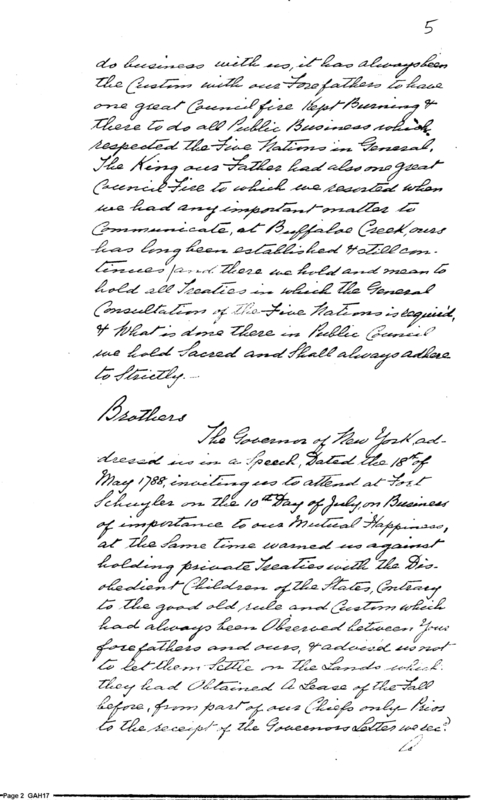 5
do business with us, it has always been
the Custom with our Forefathers to have
one great Council fire Kept Burning &
there to do all Public Business which
respected the Five Nations in General.
The King our Father had also one great
Council Fire to which we resorted when
we had any important matter to
Communicate, at Buffaloe Creek, ours
has long been established & still con-
tinues, and there we hold and mean to
hold all Treaties in which the General
Consultation of the Five Nations is required,
& What is done there in Public Council
we hold Sacred and Shall always adhere
to Strictly. -
Brothers
The Governor of New York, ad-
dressed us in a Speech, Dated the 18th of
May 1788, inviting us to attend at Fort
Schuyler on the 10th Day of July, on Business
of importance to our Mutual Happiness,
at the Same time warned us against
holding private Treaties with the Dis-
obedient Children of the States, Contrary
to the good old rule and Custom which
had always been Observed between Your
forefathers and ours, & advised us not
to let them Settle on the Lands which
they had Obtained A Lease of the Fall
before, from part of our Chiefs only Prior
to the receipt of the Governors Letter we recd.
Page 2 GAH17